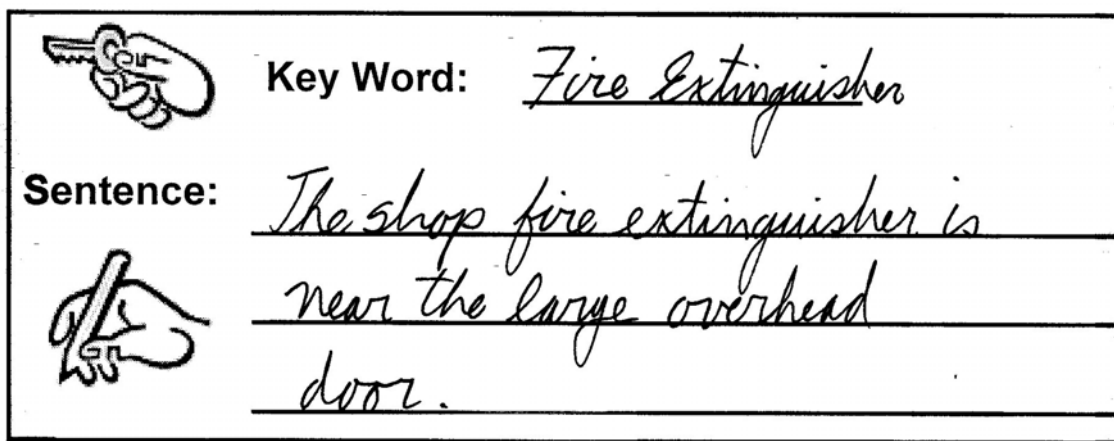 Key Word: Fire Extinguisher
Sentence: The shop fire extinguisher is
near the large overhead
door.